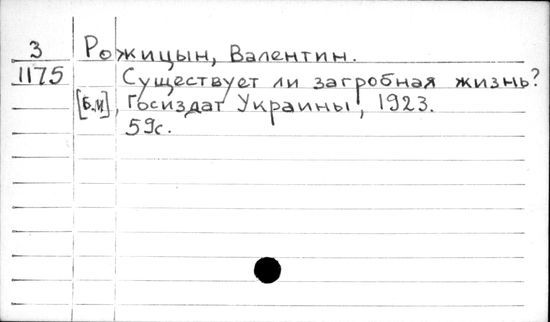 3 Рожицын, Валентин.
1175 Существует ли загробная жизнь?
[Б.М], Госиздат Украины, 1923.
59с.